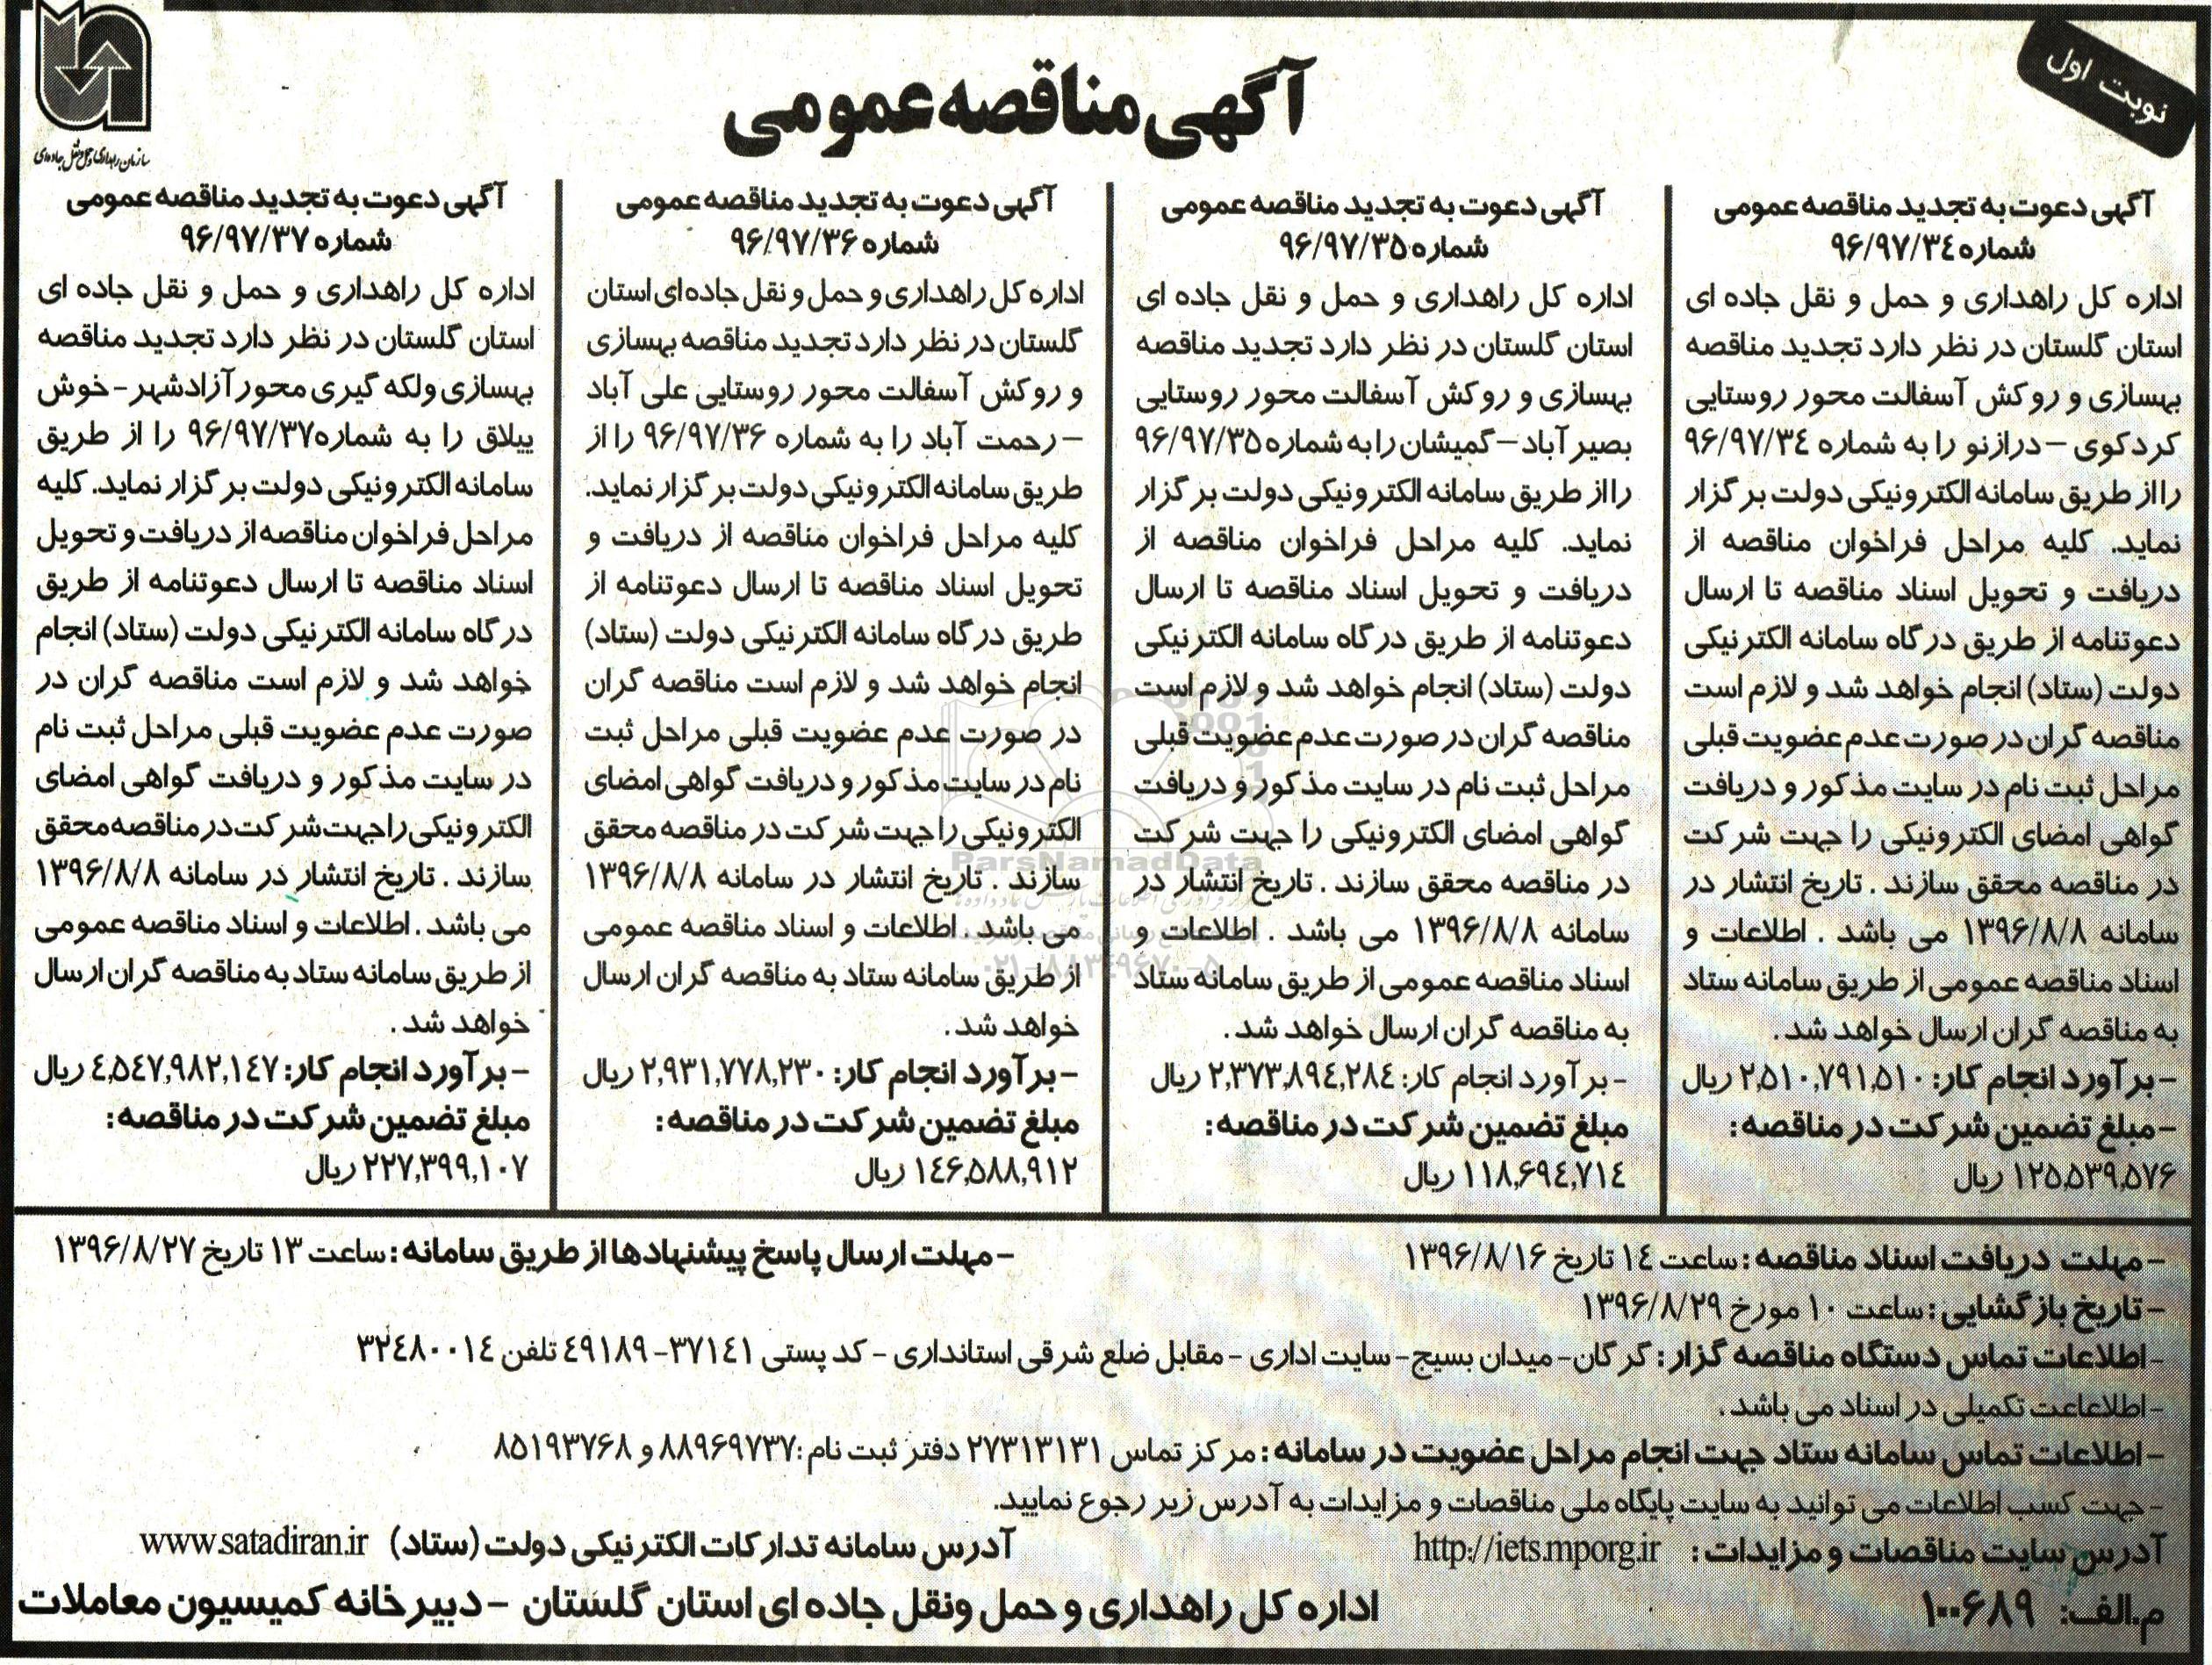 نوبت اول
آگهی مناقصه عمومی
سازمان راهداری و حمل و نقل جاده‌ای
آگهی دعوت به تجدید مناقصه عمومی
شماره ۹۶/۹۷/۳٤
اداره کل راهداری و حمل و نقل جاده ای
استان گلستان در نظر دارد تجدید مناقصه
بهسازی و روکش آسفالت محور روستایی
کردکوی – درازنو را به شماره ۹۶/۹۷/۳٤
را از طریق سامانه الکترونیکی دولت برگزار
نماید. کلیه مراحل فراخوان مناقصه از
دریافت و تحویل اسناد مناقصه تا ارسال
دعوتنامه از طریق درگاه سامانه الکترنیکی
دولت (ستاد) انجام خواهد شد و لازم است
مناقصه گران در صورت عدم عضویت قبلی
مراحل ثبت نام در سایت مذکور و دریافت
گواهی امضای الکترونیکی را جهت شرکت
در مناقصه محقق سازند . تاریخ انتشار در
سامانه ۱۳۹۶/۸/۸ می باشد . اطلاعات و
اسناد مناقصه عمومی از طریق سامانه ستاد
به مناقصه گران ارسال خواهد شد .
- برآورد انجام کار: ۲,۵۱۰,۷۹۱,۵۱۰ ریال
- مبلغ تضمین شرکت در مناقصه:
۱۲۵,۵۳۹,۵۷۶ ریال
آگهی دعوت به تجدید مناقصه عمومی
شماره ۹۶/۹۷/۳۵
اداره کل راهداری و حمل و نقل جاده ای
استان گلستان در نظر دارد تجدید مناقصه
بهسازی و روکش آسفالت محور روستایی
بصیر آباد – گمیشان را به شماره ۹۶/۹۷/۳۵
را از طریق سامانه الکترونیکی دولت برگزار
نماید. کلیه مراحل فراخوان مناقصه از
دریافت و تحویل اسناد مناقصه تا ارسال
دعوتنامه از طریق درگاه سامانه الکترنیکی
دولت (ستاد) انجام خواهد شد و لازم است
مناقصه گران در صورت عدم عضویت قبلی
مراحل ثبت نام در سایت مذکور و دریافت
گواهی امضای الکترونیکی را جهت شرکت
در مناقصه محقق سازند . تاریخ انتشار در
سامانه ۱۳۹۶/۸/۸ می باشد . اطلاعات و
اسناد مناقصه عمومی از طریق سامانه ستاد
به مناقصه گران ارسال خواهد شد .
- برآورد انجام کار: ۲,۳۷۳,۸۹٤,۲۸٤ ریال
مبلغ تضمین شرکت در مناقصه:
۱۱۸,۶۹٤,۷۱٤ ریال
آگهی دعوت به تجدید مناقصه عمومی
شماره ۹۶/۹۷/۳۶
اداره کل راهداری و حمل و نقل جاده ای استان
گلستان در نظر دارد تجدید مناقصه بهسازی
و روکش آسفالت محور روستایی علی آباد
– رحمت آباد را به شماره ۹۶/۹۷/۳۶ را از
طریق سامانه الکترونیکی دولت برگزار نماید.
کلیه مراحل فراخوان مناقصه از دریافت و
تحویل اسناد مناقصه تا ارسال دعوتنامه از
طریق درگاه سامانه الکترنیکی دولت (ستاد)
انجام خواهد شد و لازم است مناقصه گران
در صورت عدم عضویت قبلی مراحل ثبت
نام در سایت مذکور و دریافت گواهی امضای
الکترونیکی را جهت شرکت در مناقصه محقق
سازند . تاریخ انتشار در سامانه ۱۳۹۶/۸/۸
می باشد . اطلاعات و اسناد مناقصه عمومی
از طریق سامانه ستاد به مناقصه گران ارسال
خواهد شد .
- برآورد انجام کار: ۲,۹۳۱,۷۷۸,۲۳۰ ریال
مبلغ تضمین شرکت در مناقصه:
۱٤۶,۵۸۸,۹۱۲ ریال
آگهی دعوت به تجدید مناقصه عمومی
شماره ۹۶/۹۷/۳۷
اداره کل راهداری و حمل و نقل جاده ای
استان گلستان در نظر دارد تجدید مناقصه
بهسازی ولکه گیری محور آزادشهر - خوش
ییلاق را به شماره ۹۶/۹۷/۳۷ را از طریق
سامانه الکترونیکی دولت برگزار نماید. کلیه
مراحل فراخوان مناقصه از دریافت و تحویل
اسناد مناقصه تا ارسال دعوتنامه از طریق
درگاه سامانه الکترنیکی دولت (ستاد) انجام
خواهد شد و لازم است مناقصه گران در
صورت عدم عضویت قبلی مراحل ثبت نام
در سایت مذکور و دریافت گواهی امضای
الکترونیکی را جهت شرکت در مناقصه محقق
سازند . تاریخ انتشار در سامانه ۱۳۹۶/۸/۸
می باشد . اطلاعات و اسناد مناقصه عمومی
از طریق سامانه ستاد به مناقصه گران ارسال
خواهد شد .
- برآورد انجام کار: ٤,۵٤۷,۹۸۲,۱٤۷ ریال
مبلغ تضمین شرکت در مناقصه:
۲۲۷,۳۹۹,۱۰۷ ریال
- مهلت دریافت اسناد مناقصه : ساعت ۱٤ تاریخ ۱۳۹۶/۸/۱۶
- مهلت ارسال پاسخ پیشنهادها از طریق سامانه : ساعت ۱۳ تاریخ ۱۳۹۶/۸/۲۷
- تاریخ بازگشایی : ساعت ۱۰ مورخ ۱۳۹۶/۸/۲۹
- اطلاعات تماس دستگاه مناقصه گزار : گرگان - میدان بسیج - سایت اداری - مقابل ضلع شرقی استانداری - کد پستی ۳۷۱٤۱ - ٤۹۱۸۹ تلفن ۳۲٤۸۰۰۱٤
- اطلاعاعت تکمیلی در اسناد می باشد .
- اطلاعات تماس سامانه ستاد جهت انجام مراحل عضویت در سامانه : مرکز تماس ۲۷۳۱۳۱۳۱ دفتر ثبت نام : ۸۸۹۶۹۷۳۷ و ۸۵۱۹۳۷۶۸
- جهت کسب اطلاعات می توانید به سایت پایگاه ملی مناقصات و مزایدات به آدرس زیر رجوع نمایید.
آدرس سایت مناقصات و مزایدات : http://iets.mporg.ir
آدرس سامانه تدارکات الکترنیکی دولت (ستاد) www.satadiran.ir
م.الف: ۱۰۰۶۸۹
اداره کل راهداری و حمل ونقل جاده ای استان گلستان - دبیرخانه کمیسیون معاملات
ParsNamadData
۰۲۱-۸۸۳٤۹۶۷۰-۵